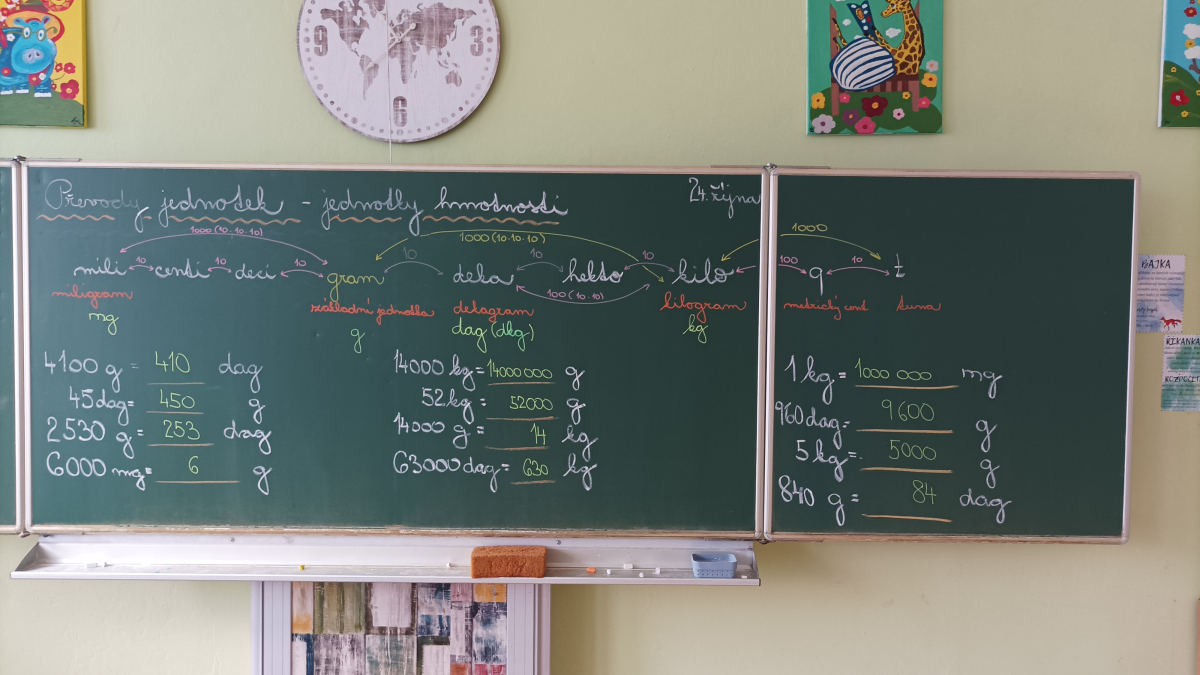 9 3
6
Převody jednotek - jednotky hmotnosti 24. října
1000 (10·10·10) 1000 (10·10·10) 1000
mili 10 centi 10 deci 10 gram 10 deka 10 hekto 10 kilo 100 q 10 t
100 (10·10)
miligram základní jednotka dekagram kilogram metrický cent tuna
mg g dag (dkg) kg
4100 g = 410 dag
45 dag = 450 g
2530 g = 253 dag
6000 mg = 6 g
14000 kg = 14000 000 g
52 kg = 52000 g
14000 g = 14 kg
63000 dag = 630 kg
1 kg = 1000 000 mg
960 dag = 9600 g
5 kg = 5000 g
840 g = 84 dag
BAJKA